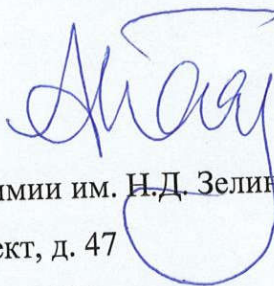 имии им. Н.Д. Зелин
ект, д. 47